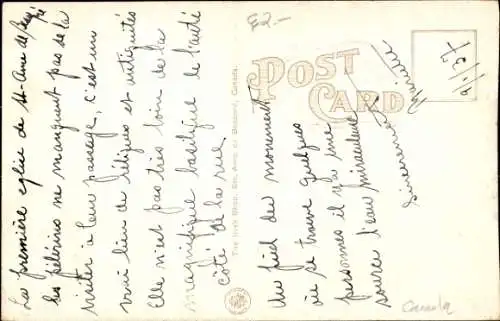 La première eglise de St-Anne de Beaupré
les pélérins ne manquent pas de la
visiter à leur passage, c'est un
vrai lieu de réliques et antiquités
Elle n'est pas très loin de la
magnifique basilique de l'autre
côté de la rue.
The Irish Shop, Ste. Anne, de Beaupré, Canada.
E2.-
POST
CARD
Au pied du monument
où se trouve quelques
personnes il y a une
source l'eau miraculeuse
sincerement
9.1.37
Canada